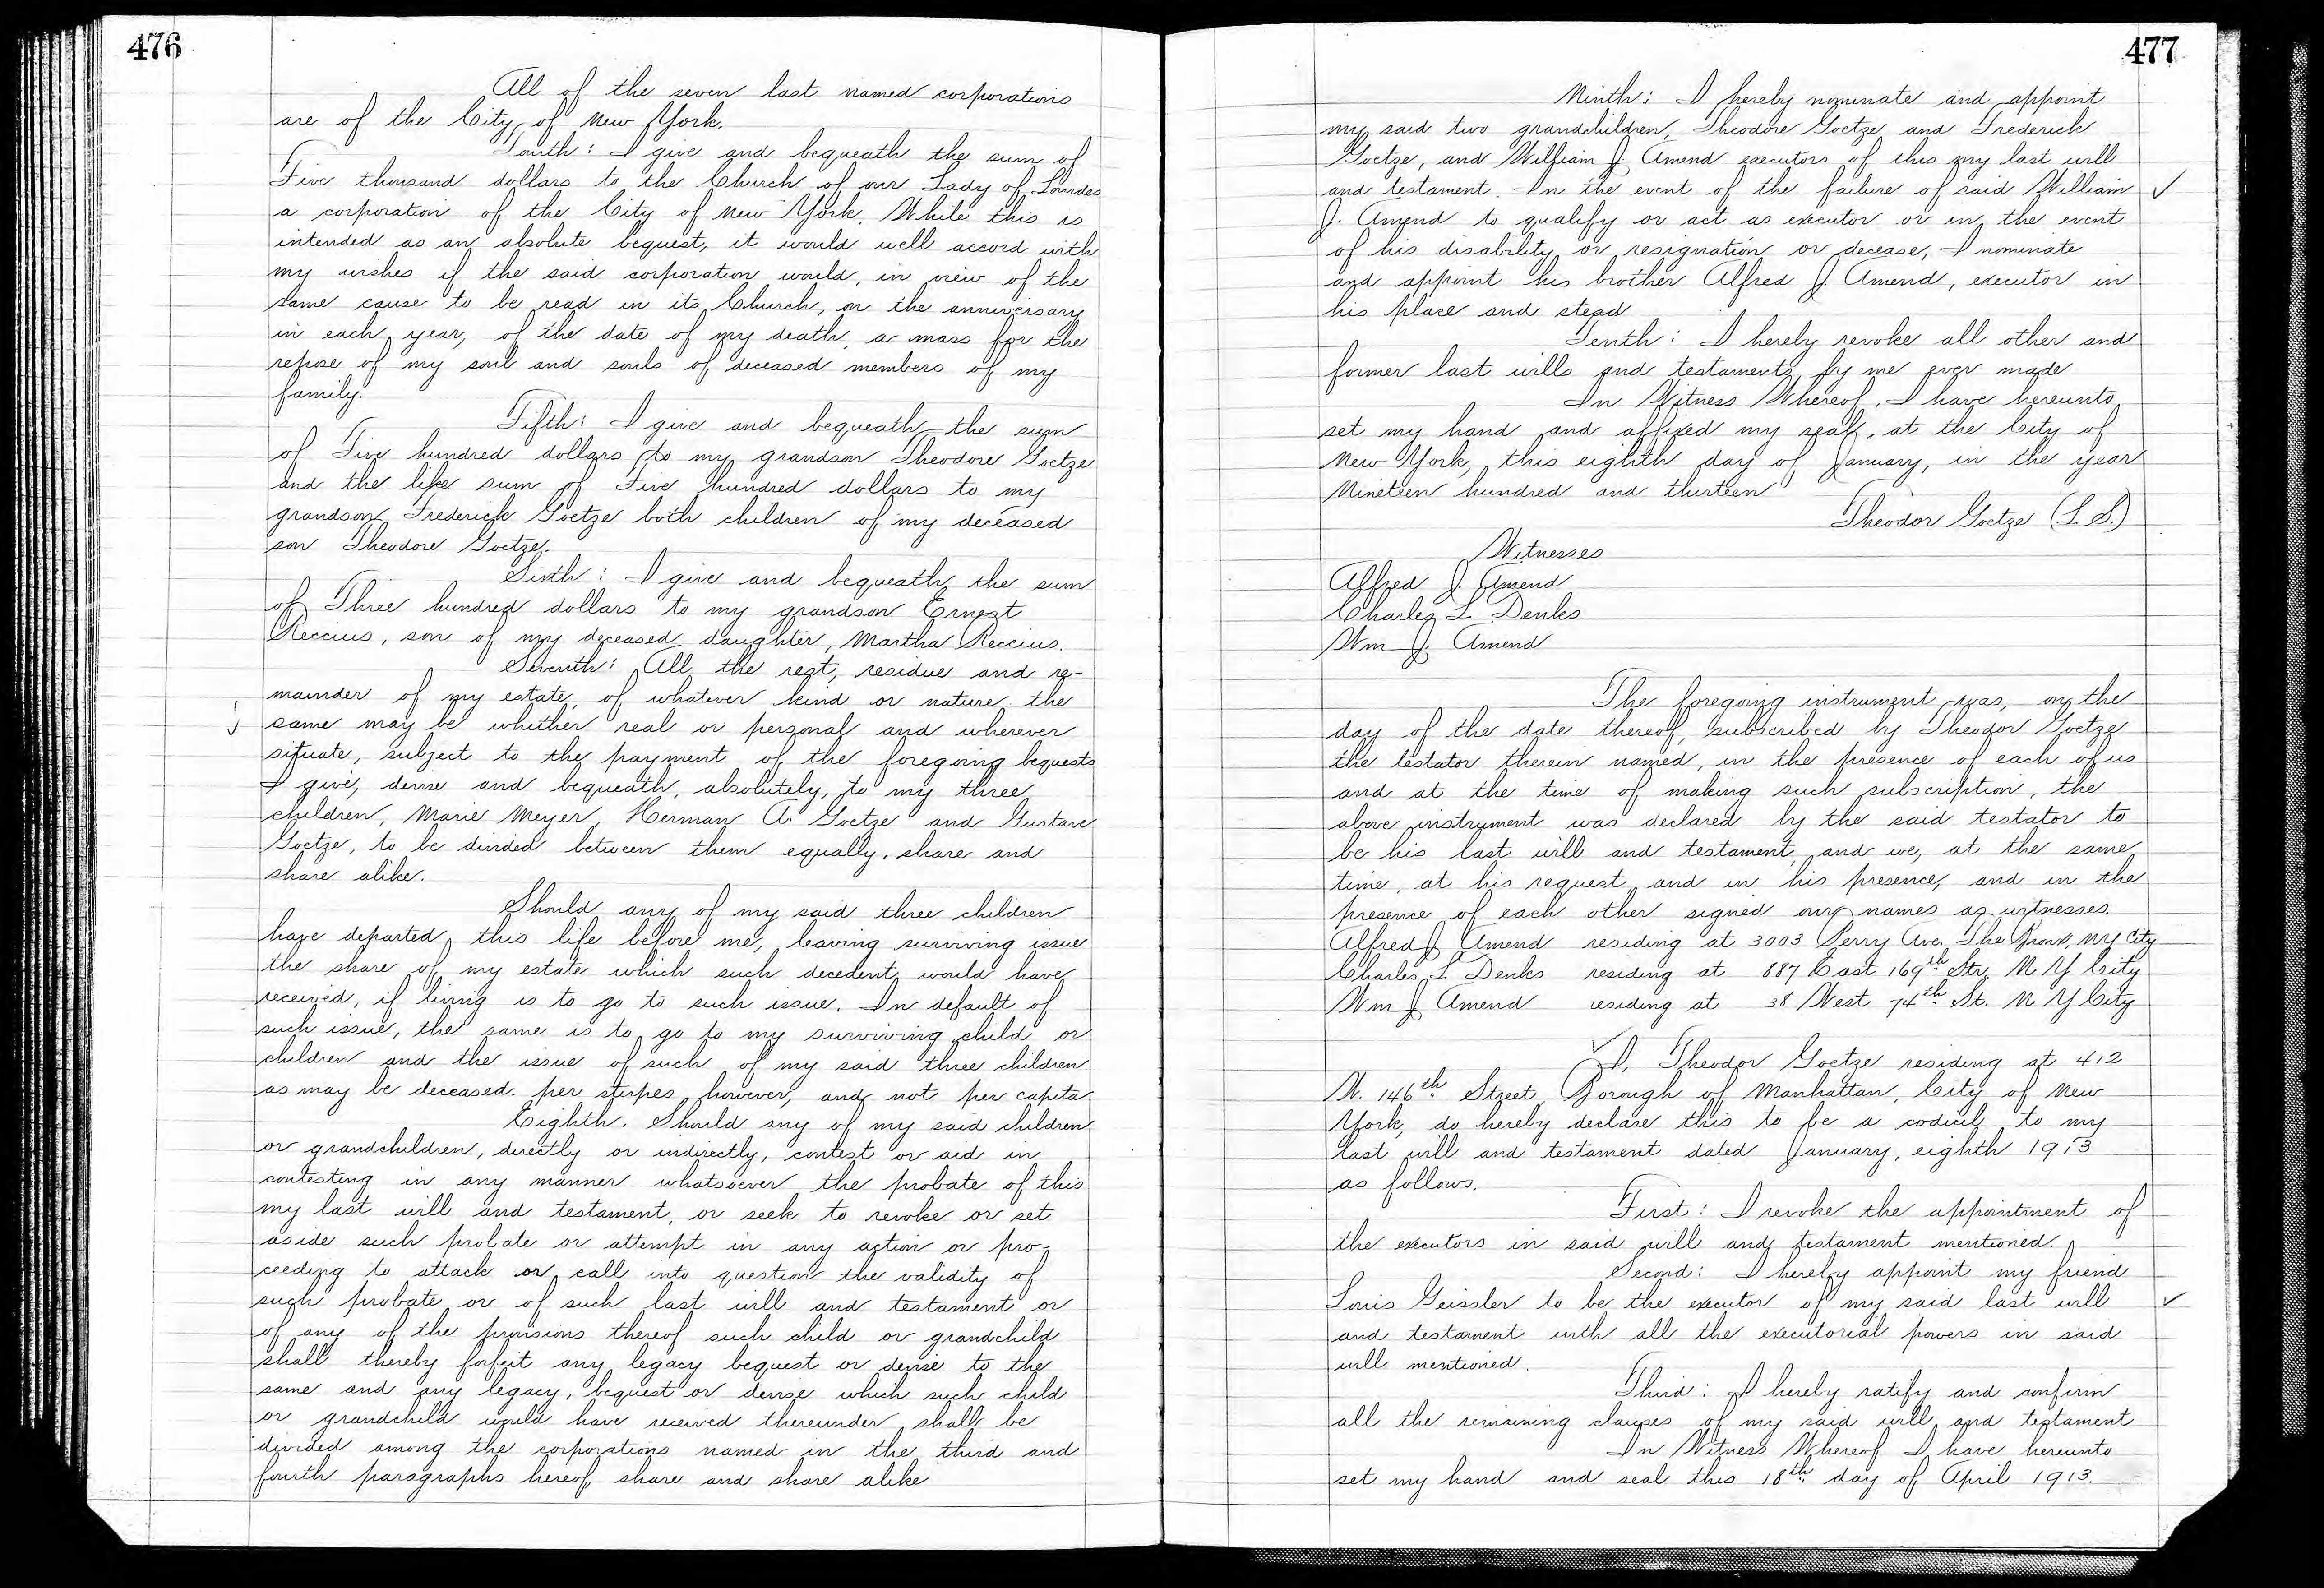 476
All of the seven last named corporations
are of the City of New York.
Fourth: I give and bequeath the sum of
Five thousand dollars to the Church of our Lady of Lourdes
a corporation of the City of New York. While this is
intended as an absolute bequest, it would well accord with
my wishes if the said corporation would, in view of the
same cause to be read in its Church, on the anniversary
in each year, of the date of my death, a mass for the
repose of my soul and souls of deceased members of my
family.
Fifth: I give and bequeath the sum
of Five hundred dollars to my grandson Theodore Goetze
and the like sum of Five hundred dollars to my
grandson Frederick Goetze both children of my deceased
son Theodore Goetze.
Sixth: I give and bequeath the sum
of Three hundred dollars to my grandson Ernest
Reccius, son of my deceased daughter, Martha Reccius.
Seventh: All the rest, residue and re-
mainder of my estate, of whatever kind or nature the
same may be whether real or personal and wherever
situate, subject to the payment of the foregoing bequests
I give, devise and bequeath, absolutely, to my three
children, Marie Meyer, Herman A. Goetze and Gustave
Goetze, to be divided between them equally, share and
share alike.
Should any of my said three children
have departed this life before me, leaving surviving issue
the share of my estate which such decedent would have
received, if living is to go to such issue. In default of
such issue, the same is to go to my surviving child or
children and the issue of such of my said three children
as may be deceased. per stirpes however, and not per capita
Eighth. Should any of my said children
or grandchildren, directly or indirectly, contest or aid in
contesting in any manner whatsoever the probate of this
my last will and testament, or seek to revoke or set
aside such probate or attempt in any action or pro-
ceeding to attack or call into question the validity of
such probate or of such last will and testament or
of any of the provisions thereof such child or grandchild
shall thereby forfeit any legacy bequest or devise to the
same and any legacy, bequest or devise which such child
or grandchild would have received thereunder shall be
divided among the corporations named in the third and
fourth paragraphs hereof, share and share alike
477
Ninth: I hereby nominate and appoint
my said two grandchildren, Theodore Goetze and Frederick
Goetze, and William J. Amend executors of this my last will
and testament. In the event of the failure of said William
J. Amend to qualify or act as executor or in the event
of his disability or resignation or decease, I nominate
and appoint his brother Alfred J. Amend, executor in
his place and stead
Tenth: I hereby revoke all other and
former last wills and testaments by me ever made
In Witness Whereof, I have hereunto
set my hand and affixed my seal, at the City of
New York, this eighth day of January, in the year
Nineteen hundred and thirteen
Theodor Goetze (L. S.)
Witnesses
Alfred J. Amend
Charles L. Denks
Wm J. Amend
The foregoing instrument was, on the
day of the date thereof, subscribed by Theodor Goetze
the testator therein named, in the presence of each of us
and at the time of making such subscription, the
above instrument was declared by the said testator to
be his last will and testament, and we, at the same
time, at his request and in his presence, and in the
presence of each other signed our names as witnesses.
Alfred J Amend residing at 3003 Perry Ave. The Bronx, NY City
Charles L. Denks residing at 887 East 169th Str. N Y City
Wm J Amend residing at 38 West 74th St. N Y City
I, Theodor Goetze residing at 412
W. 146th Street, Borough of Manhattan, City of New
York, do hereby declare this to be a codicil to my
last will and testament dated January, eighth 1913
as follows.
First: I revoke the appointment of
the executors in said will and testament mentioned.
Second: I hereby appoint my friend
Louis Geissler to be the executor of my said last will
and testament with all the executorial powers in said
will mentioned.
Third: I hereby ratify and confirm
all the remaining clauses of my said will and testament
In Witness Whereof I have hereunto
set my hand and seal this 18th day of April 1913.